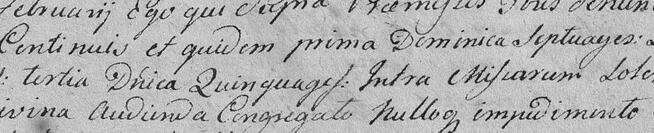 Februarij Ego qui Supra Præmissis Tribus denun
Continuis et quidem prima Dominica Septuages:
: tertia Dnica Quinquages: Intra Missarum Solem
ivina Audienda Congregato Nulloq impedimento